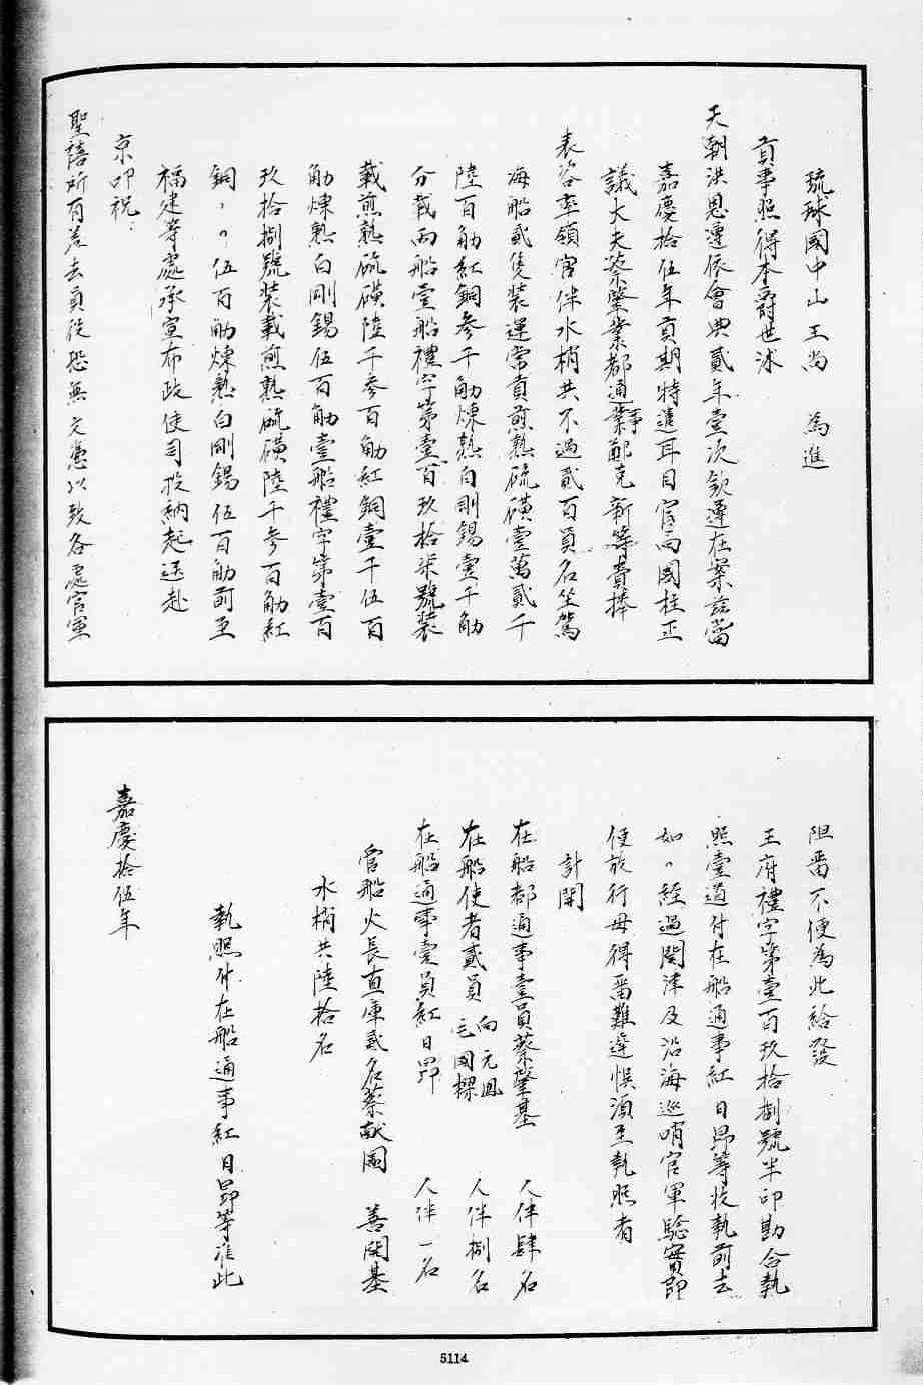 琉球國中山王尚　為進
貢事照得本爵世沐
天朝洪恩遵依會典貳年壹次欽遵在案茲當
嘉慶拾伍年貢期特遣耳目官向國柱正
議大夫蔡肇業都通事鄭克新等賫捧
表咨率領官伴水梢共不過貳百員名坐駕
海船貳隻裝運常貢煎熟硫磺壹萬貳千
陸百觔紅銅參千觔煉熟白剛錫壹千觔
分載兩船壹船禮字第壹百玖拾柒號裝
載煎熟硫磺陸千參百觔紅銅壹千伍百
觔煉熟白剛錫伍百觔壹船禮字第壹百
玖拾捌號裝載煎熟硫磺陸千參百觔紅
銅、、伍百觔煉熟白剛錫伍百觔前至
福建等處承宣布政使司投納起送赴
京叩祝
聖禧所有差去員役恐無文憑以致各處官軍
阻畱不便為此給發
王府禮字第壹百玖拾捌號半印勘合執
照壹道付在船通事紅日昂等收執前去
如、經過関津及沿海巡哨官軍驗實即
便放行毋得畱難遲悞須至執照者
計開
在船都通事壹員蔡肇基　人伴肆名
在船使者貳員　向元鳳　毛國樑　人伴捌名
在船通事壹員紅日昂　人伴一名
管船火長直庫貳名蔡献圖　善開基
水梢共陸拾名
執照付在船通事紅日昂等准此
嘉慶拾伍年
5114